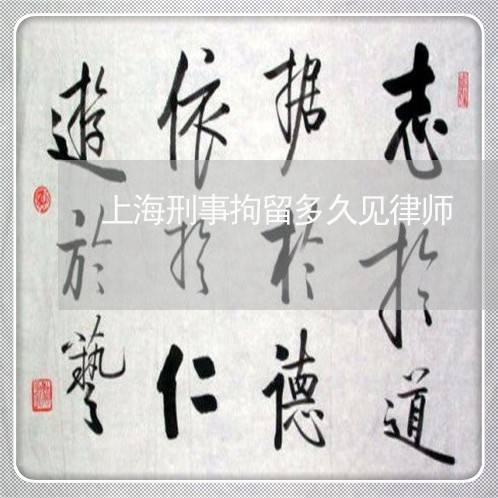 志於道
据於德
依於仁
遊於藝
上海刑事拘留多久见律师